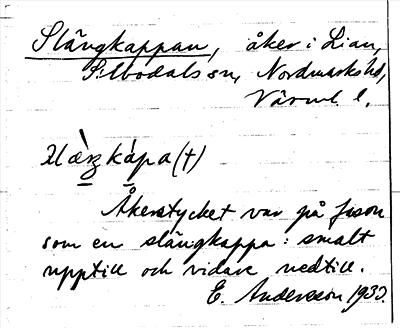 Slängkappan, åker i Lian,
Silbodals sn, Nordmarks hd,
Värml. l.
kápa (t)
Åkerstycket var på fason
som en slängkappa: smalt
upptill och vidare nedtill.
E. Andersson 1930.